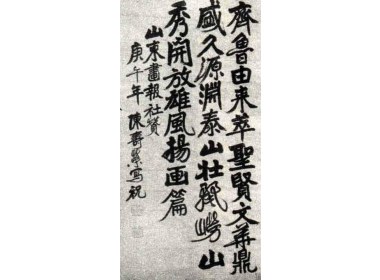 齊魯由来萃聖賢文華鼎
盛久源淵泰山壮麗嶗山
秀開放雄風揚画篇
山東畫報社賀
庚午年 陳壽榮寫祝